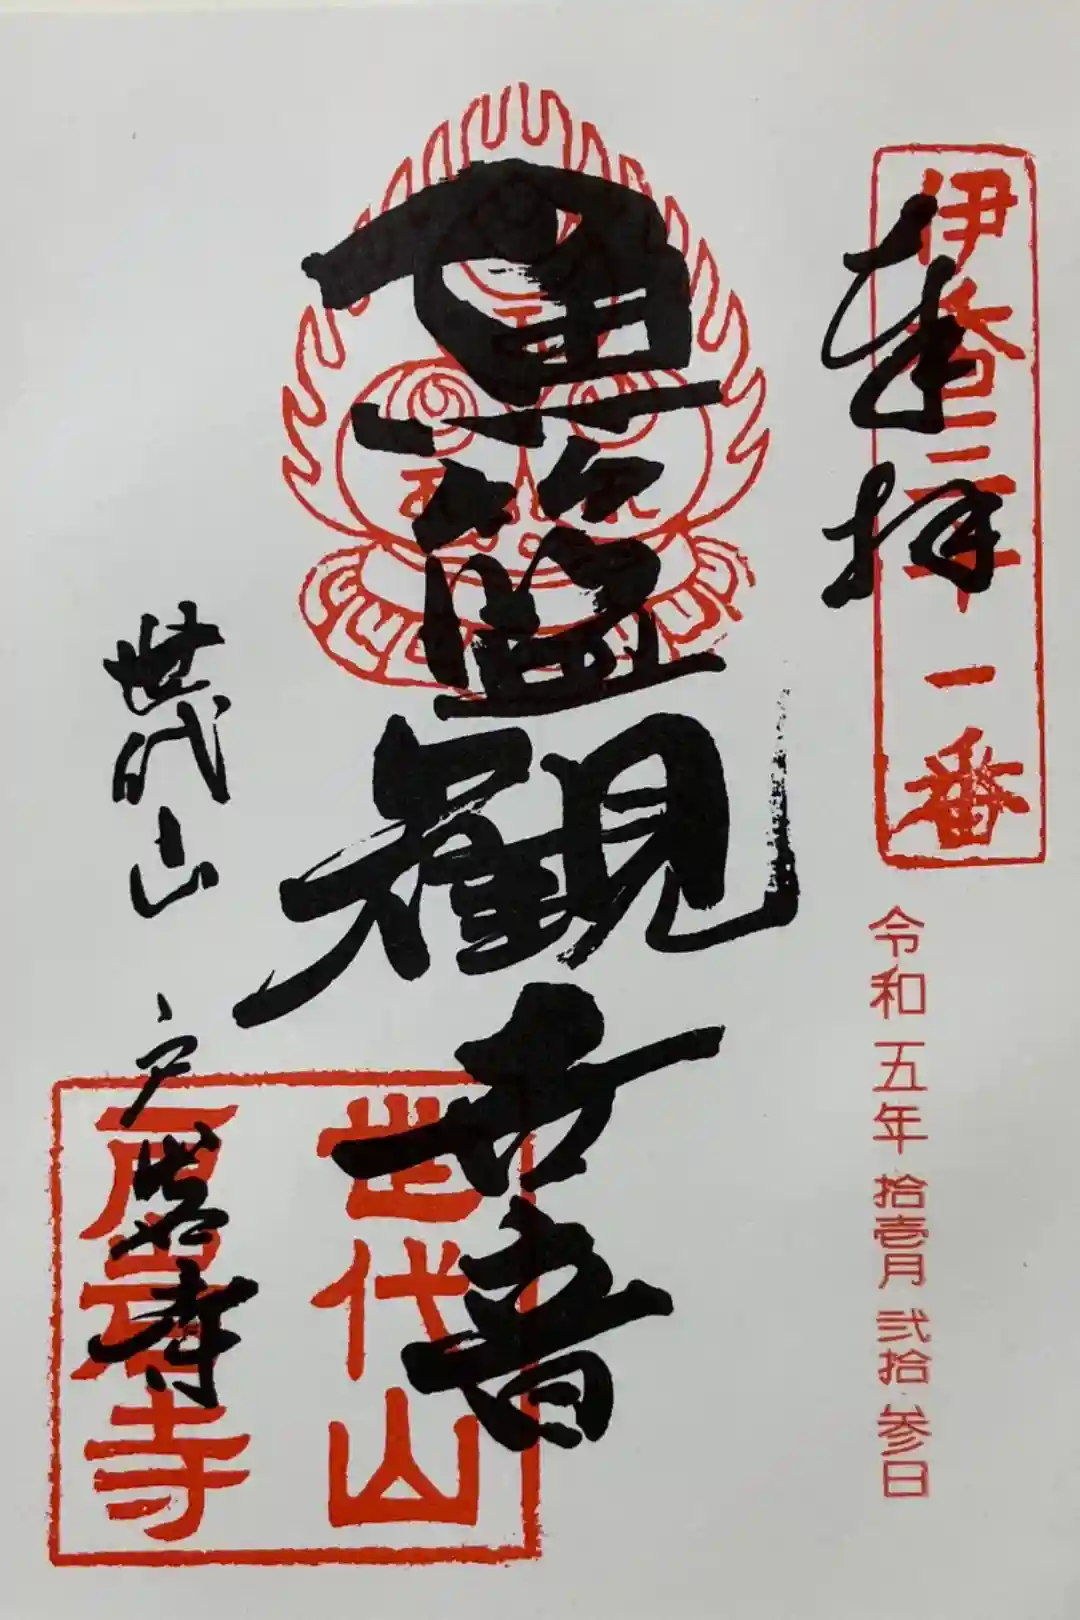 伊香三十一番
奉拝
令和五年拾壱月弐拾参日
魚籃観世音
世代山
戸岩寺
世代山
戸岩寺